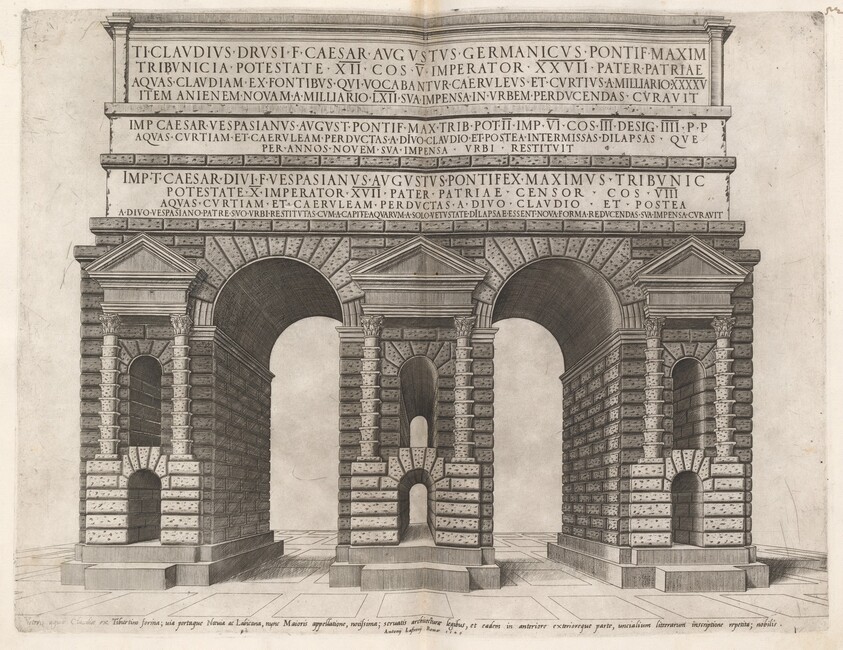 TI·CLAVDIVS·DRVSI·F·CAESAR·AVGVSTVS·GERMANICVS·PONTIF·MAXIM
TRIBVNICIA·POTESTATE·XII·COS·V·IMPERATOR·XXVII·PATER·PATRIAE
AQVAS·CLAVDIAM·EX·FONTIBVS·QVI·VOCABANTVR·CAERVLEVS·ET·CVRTIVS·A·MILLIARIO·XXXXV
ITEM·ANIENEM·NOVAM·A·MILLIARIO·LXII·SVA·IMPENSA·IN·VRBEM·PERDVCENDAS·CVRAVIT
IMP·CAESAR·VESPASIANVS·AVGVST·PONTIF·MAX·TRIB·POT·II·IMP·VI·COS·III·DESIG·IIII·P·P
AQVAS·CVRTIAM·ET·CAERVLEAM·PERDVCTAS·A·DIVO·CLAVDIO·ET·POSTEA·INTERMISSAS·DILAPSAS·QVE
PER·ANNOS·NOVEM·SVA·IMPENSA·VRBI·RESTITVIT
IMP·T·CAESAR·DIVI·F·VESPASIANVS·AVGVSTVS·PONTIFEX·MAXIMVS·TRIBVNIC
POTESTATE·X·IMPERATOR·XVII·PATER·PATRIAE·CENSOR·COS·VIII
AQVAS·CVRTIAM·ET·CAERVLEAM·PERDVCTAS·A·DIVO·CLAVDIO·ET·POSTEA
A·DIVO·VESPASIANO·PATRE·SVO·VRBI·RESTITVTAS·CVM·A·CAPITE·AQVARVM·A·SOLO·VETVSTATE·DILAPSAE·ESSENT·NOVA·FORMA·REDVCENDAS·SVA·IMPENSA·CVRAVIT
Tiburtim forina; uia portaque Næuia ac Labicana, nunc Maioris appellatione, notissima; seruatis architecturæ legibus, et eadem in anteriore exterioreque parte, uncialium literarum inscriptione repetita; nobilis.
Antonij Lafrerij Romae